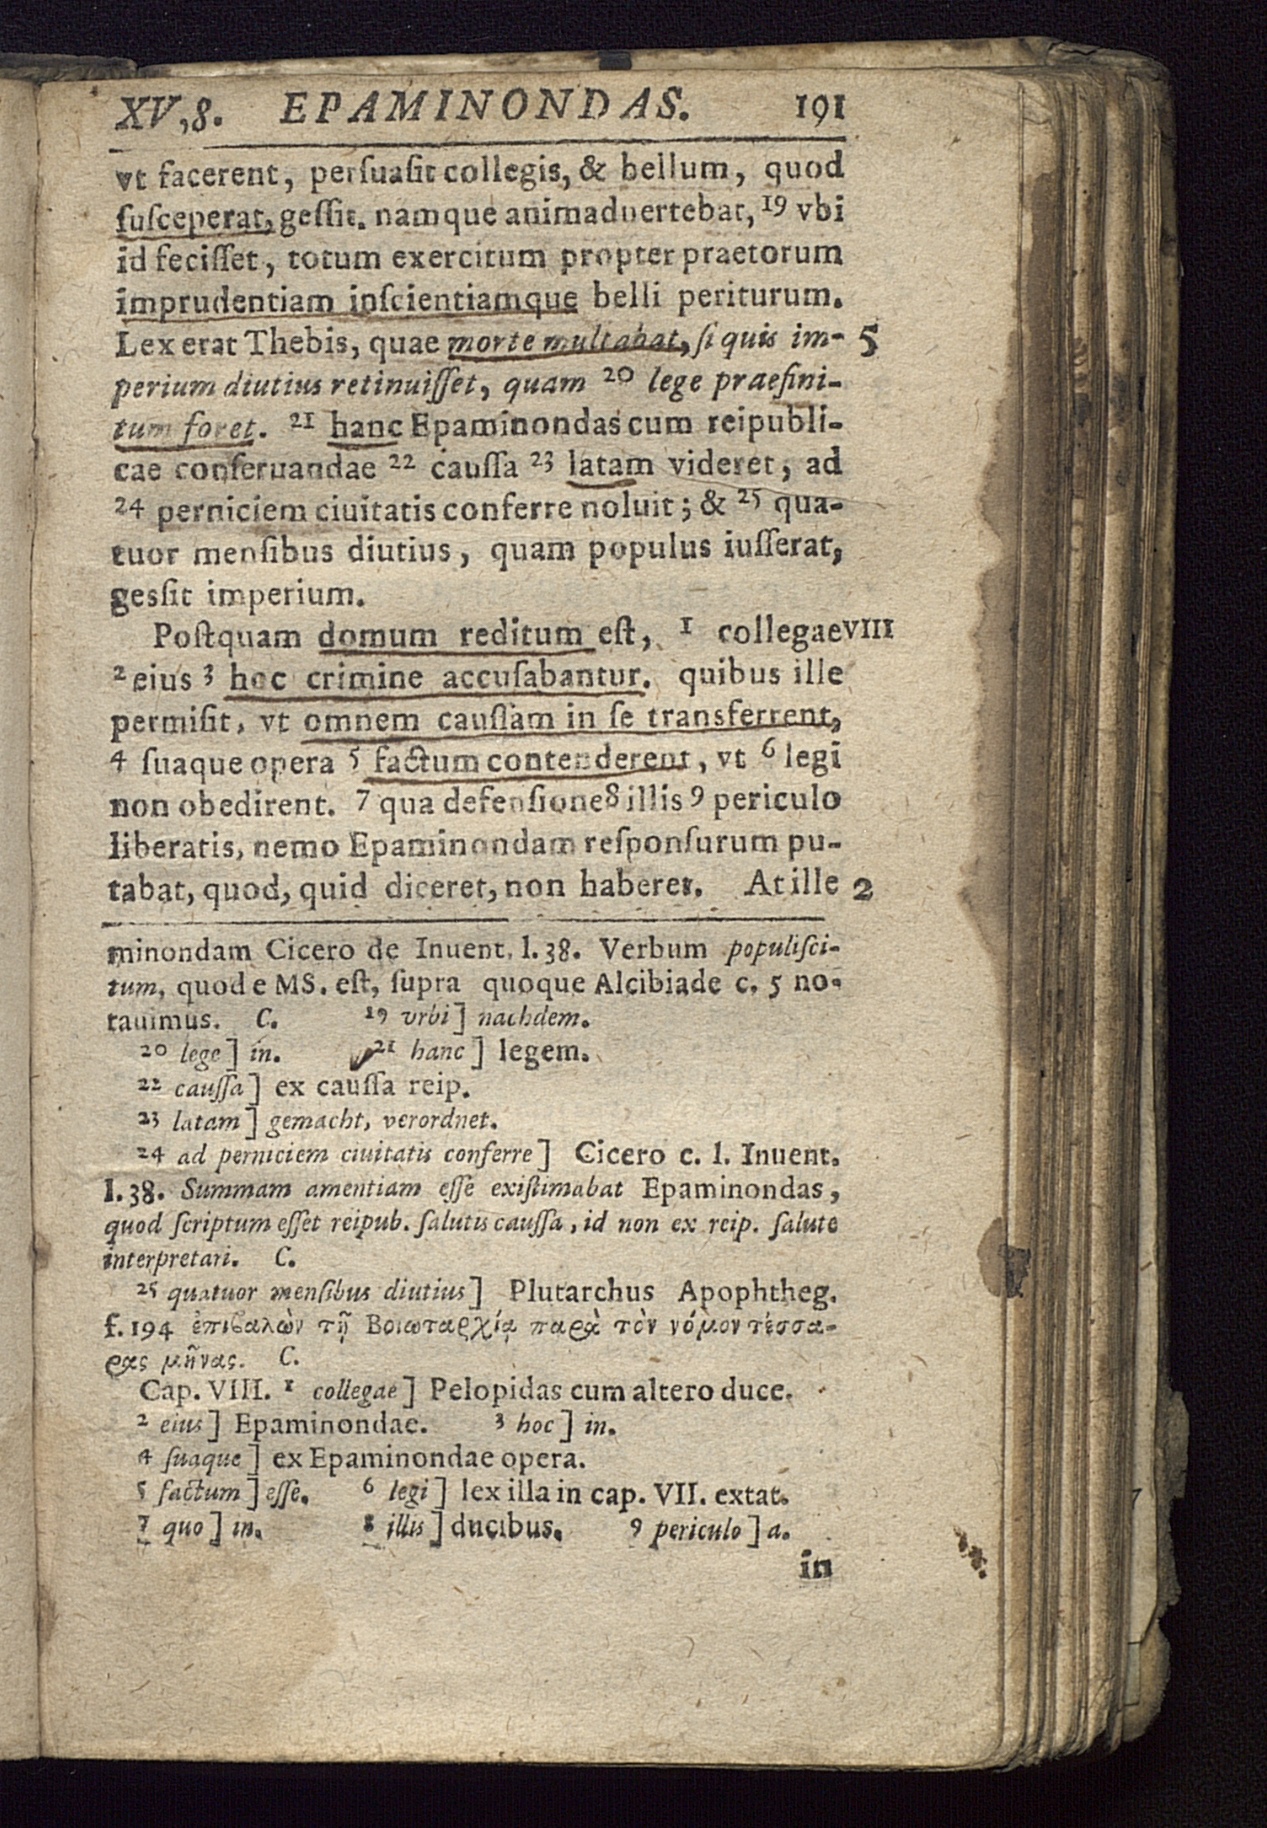 XV,8. EPAMINONDAS. 191
vt facerent, perſuaſit collegis, & bellum, quod
ſuſceperat, geſſit. namque animaduertebat, 19 vbi
id feciſſet, totum exercitum propter praetorum
imprudentiam inſcientiamque belli periturum.
Lex erat Thebis, quae morte multabat, ſi quis im- 5
perium diutius retinuiſſet, quam 20 lege praefini-
tum foret. 21 hanc Epaminondas cum reipubli-
cae conſeruandae 22 cauſſa 23 latam videret, ad
24 perniciem ciuitatis conferre noluit; & 25 qua-
tuor menſibus diutius, quam populus iuſſerat,
gesſit imperium.
Poſtquam domum reditum eſt, 1 collegae VIII
2 eius 3 hoc crimine accuſabantur. quibus ille
permiſit, vt omnem cauſſam in ſe transferrent,
4 ſuaque opera 5 factum contenderent, vt 6 legi
non obedirent. 7 qua defenſione 8 illis 9 periculo
liberatis, nemo Epaminondam reſponſurum pu-
tabat, quod, quid diceret, non haberet. At ille 2
minondam Cicero de Inuent. I. 38. Verbum populiſci-
tum, quod e MS. eſt, ſupra quoque Alcibiade c. 5 no-
tauimus. C. 19 vrbi] nachdem.
20 lege] in. 21 hanc] legem.
22 cauſſa] ex cauſſa reip.
23 latam] gemacht, verordnet.
24 ad perniciem ciuitatis conferre] Cicero c. l. Inuent.
I. 38. Summam amentiam eſſe exiſtimabat Epaminondas,
quod ſcriptum eſſet reipub. ſalutis cauſſa, id non ex reip. ſalute
interpretari. C.
25 quatuor menſibus diutius] Plutarchus Apophtheg.
f. 194 ἐπιβαλὼν τῇ Βοιωταρχίᾳ παρὰ τὸν νόμον τέσσα-
ρας μῆνας. C.
Cap. VIII. 1 collegae] Pelopidas cum altero duce.
2 eius] Epaminondae. 3 hoc] in.
4 ſuaque] ex Epaminondae opera.
5 factum] eſſe. 6 legi] lex illa in cap. VII. extat.
7 quo] in. 8 illis] ducibus. 9 periculo] a.
in